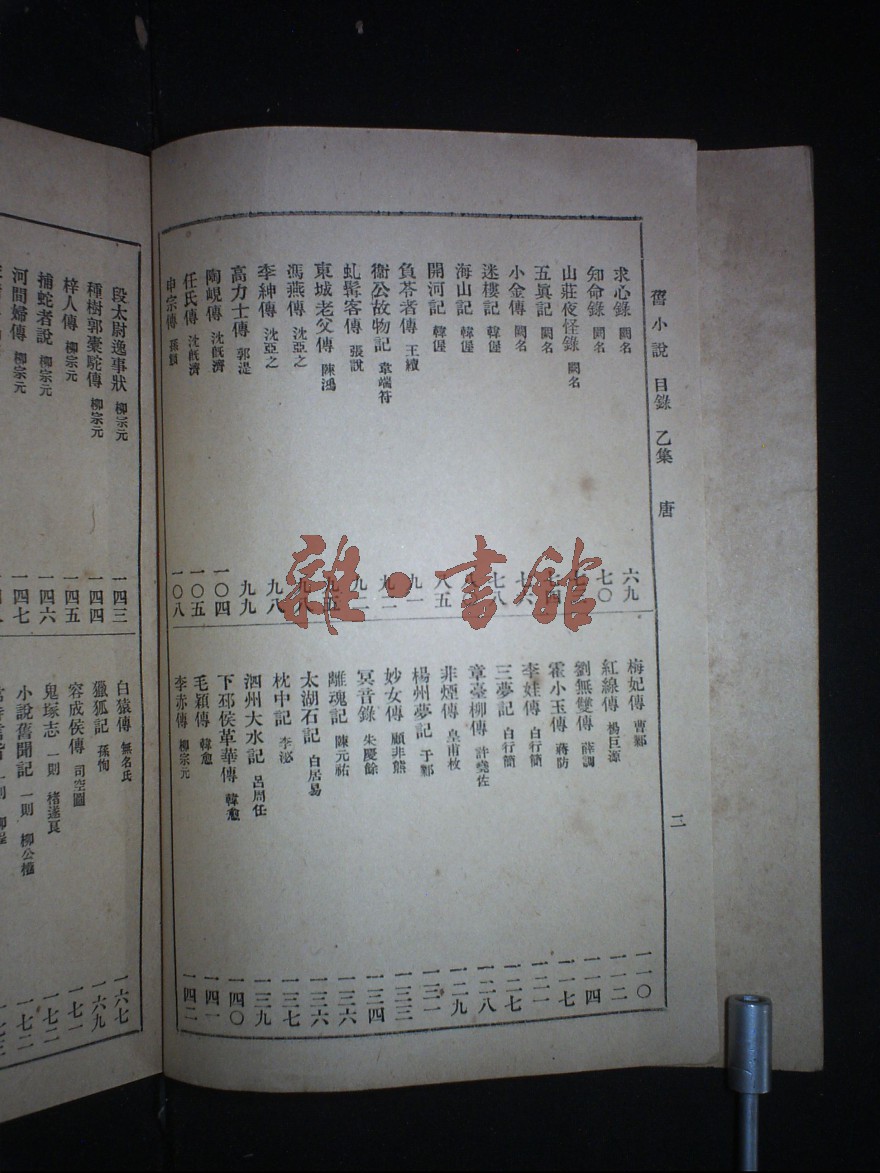 舊小說 目錄 乙集 唐
二
求心錄 闕名 六九
知命錄 闕名 七〇
山莊夜怪錄 闕名
五眞記 闕名
小金傳 闕名
迷樓記 韓偓 七八
海山記 韓偓
開河記 韓偓 八五
負苓者傳 王績 九一
衞公故物記 韋端符 九一
虬髯客傳 張說 九二
東城老父傳 陳鴻
馮燕傳 沈亞之
李紳傳 沈亞之 九八
高力士傳 郭湜 九九
陶峴傳 沈旣濟 一〇四
任氏傳 沈旣濟 一〇五
申宗傳 孫頠 一〇八
梅妃傳 曹鄴 一一〇
紅線傳 楊巨源 一一二
劉無雙傳 薛調 一一四
霍小玉傳 蔣防 一一七
李娃傳 白行簡 一二一
三夢記 白行簡 一二七
章臺柳傳 許堯佐 一二八
非煙傳 皇甫枚 一二九
楊州夢記 于鄴 一三一
妙女傳 顧非熊 一三三
冥音錄 朱慶餘 一三四
離魂記 陳元祐 一三六
太湖石記 白居易 一三六
枕中記 李泌 一三七
泗州大水記 呂周任 一三九
下邳侯革華傳 韓愈 一四〇
毛穎傳 韓愈 一四一
李赤傳 柳宗元 一四二
段太尉逸事狀 柳宗元 一四三
種樹郭橐駝傳 柳宗元 一四四
梓人傳 柳宗元 一四五
捕蛇者說 柳宗元 一四六
河間婦傳 柳宗元 一四七
白猿傳 無名氏 一六七
獵狐記 孫恂 一六九
容成侯傳 司空圖 一七一
鬼塚志 一則 褚遂良 一七二
小說舊聞記 一則 柳公權 一七二
雜·書館